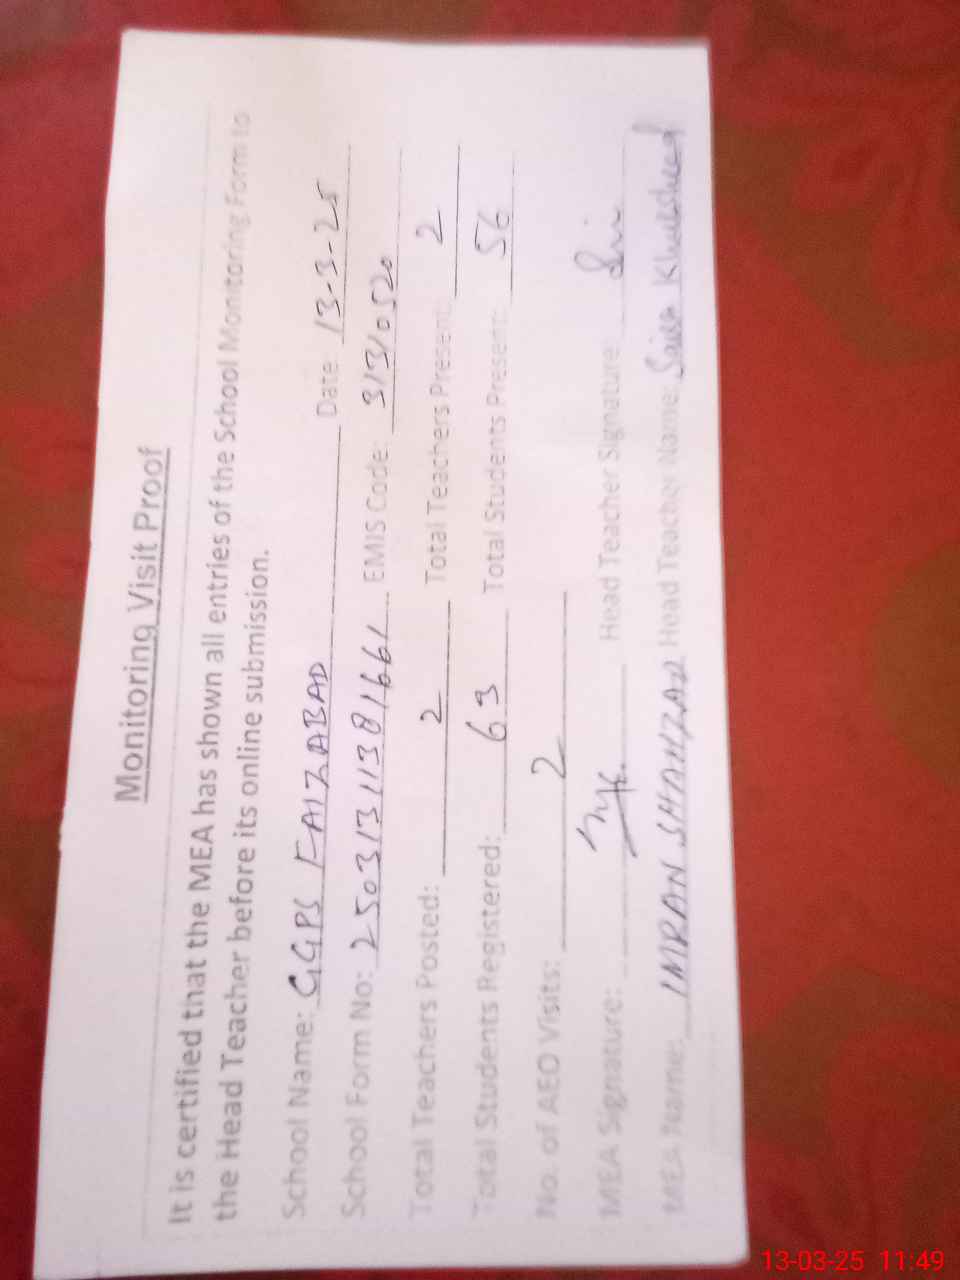 Monitoring Visit Proof
It is certified that the MEA has shown all entries of the School Monitoring Form to
the Head Teacher before its online submission.
School Name: GGPS FAIZABAD Date: 13-3-25
School Form No: 25031311381661 EMIS Code: 31310520
Total Teachers Posted: 2 Total Teachers Present: 2
Total Students Registered: 63 Total Students Present: 56
No. of AEO Visits: 2
MEA Signature: Head Teacher Signature:
MEA Name: IMRAN SHAHZAD Head Teacher Name: Khursheed
13-03-25 11:49